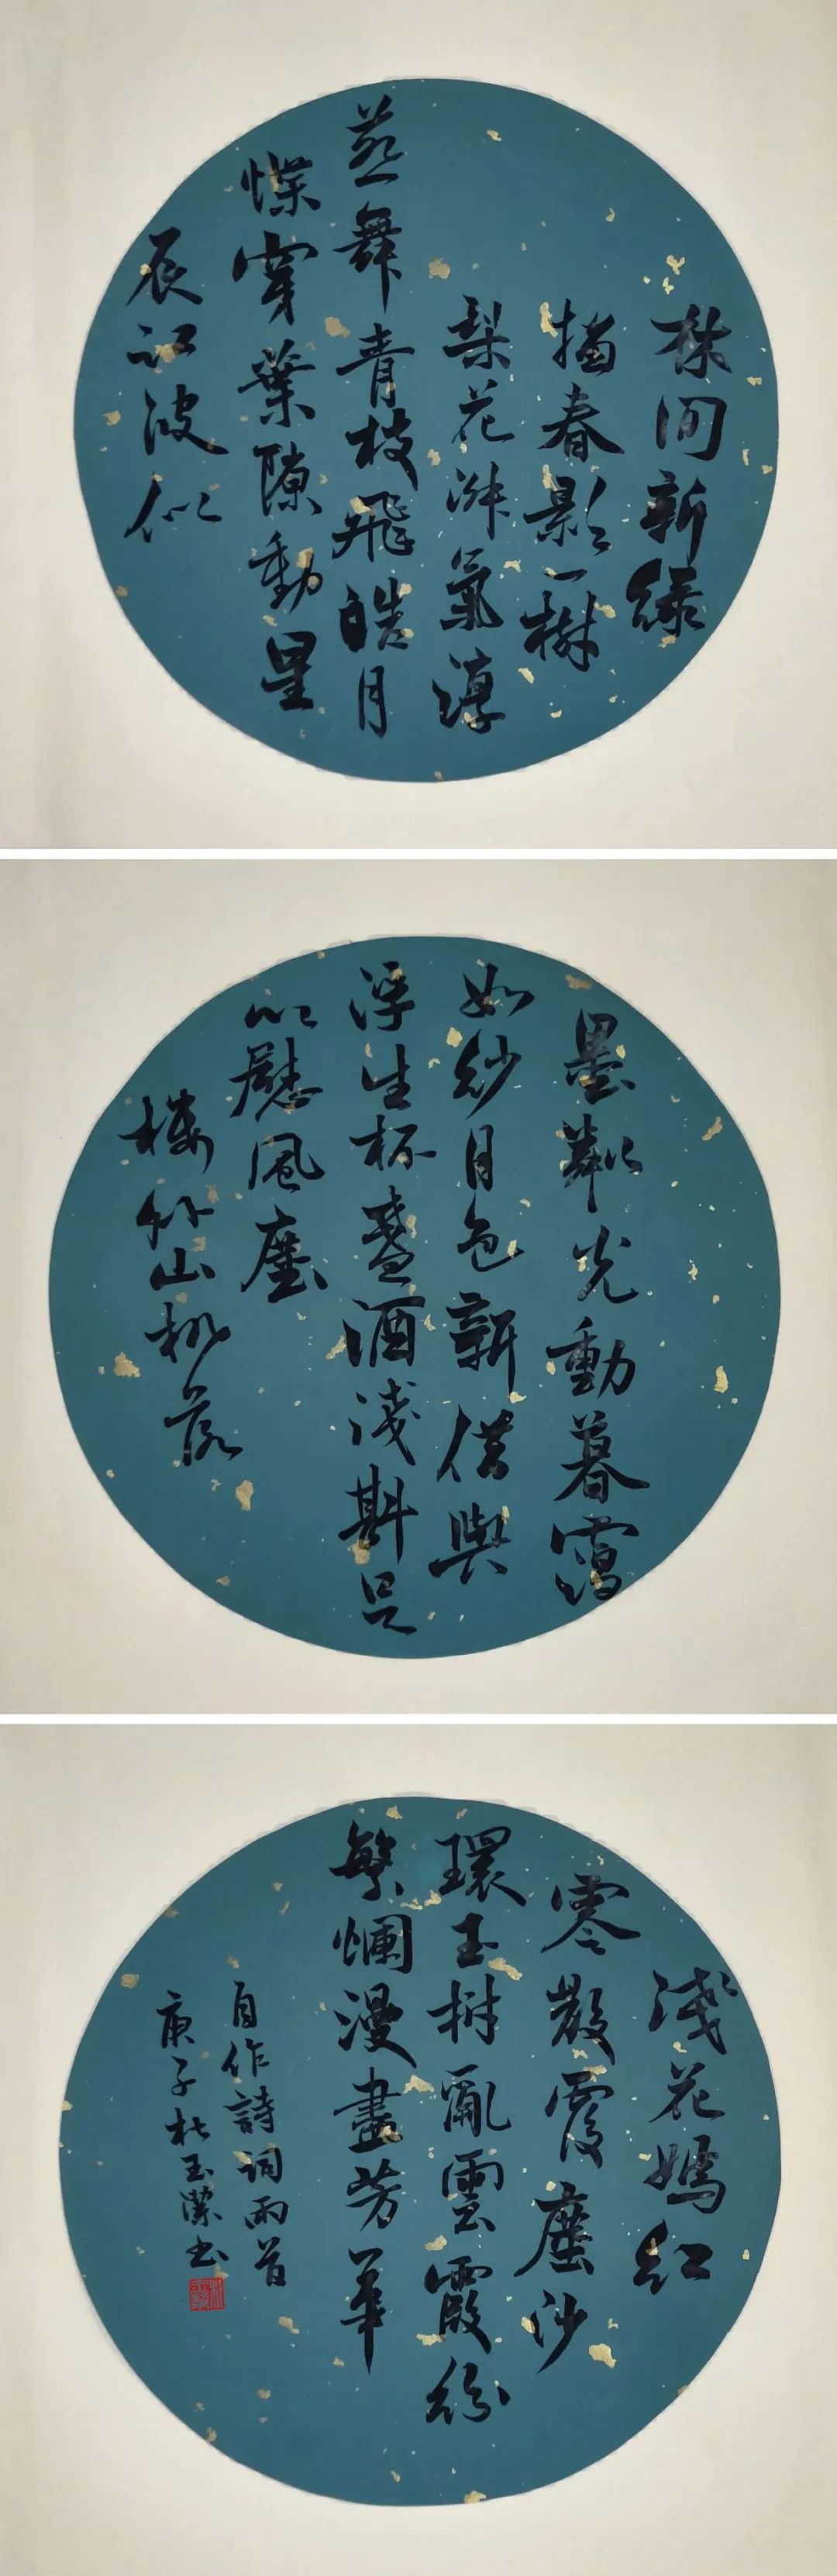 林間新緑
描春影一樹
梨花淋氣淳
燕舞青枝飛皓月
蝶穿葉隙動星
辰江波似
墨粼光動暮靄
如紗月色新借與
浮生杯盞酒淺斟足
以慰風塵
樓外山桃蕊
淺花嫣紅
零散覆塵沙
環玉樹亂雲霞紛
繁爛漫盡芳華
自作詩詞兩首
庚子杜玉潔書